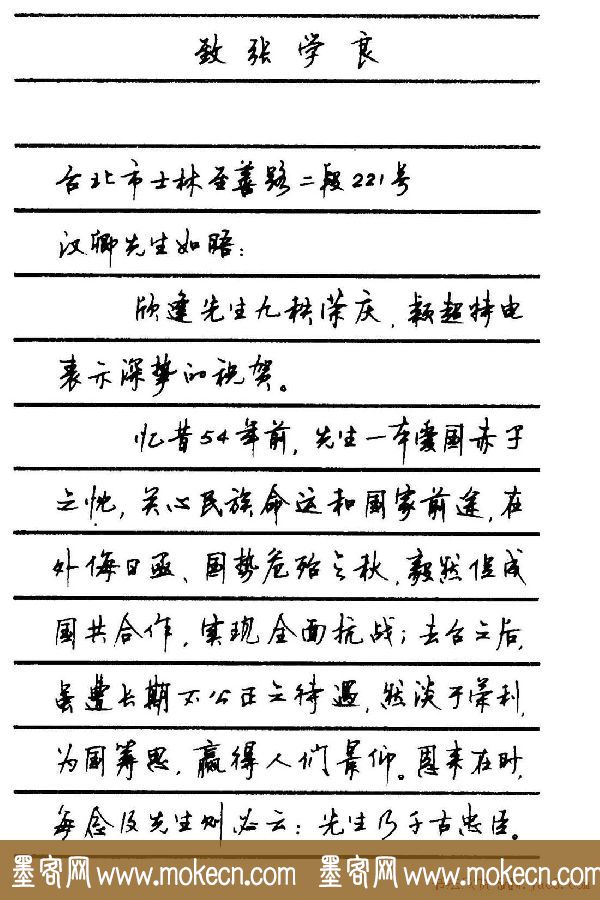 致张学良
台北市士林至善路二段221号
汉卿先生如晤：
欣逢先生九秩荣庆，颖超特电
表示深挚的祝贺。
忆昔54年前，先生一本爱国赤子
之忱，关心民族命运和国家前途，在
外侮日亟、国势危殆之秋，毅然促成
国共合作，实现全面抗战；去台之后，
虽遭长期不公正之待遇，然淡于荣利，
为国筹思，赢得人们景仰。恩来在时，
每念及先生则必云：先生乃千古忠臣。
墨客网 www.mokecn.com 墨客网 www.mokecn.com